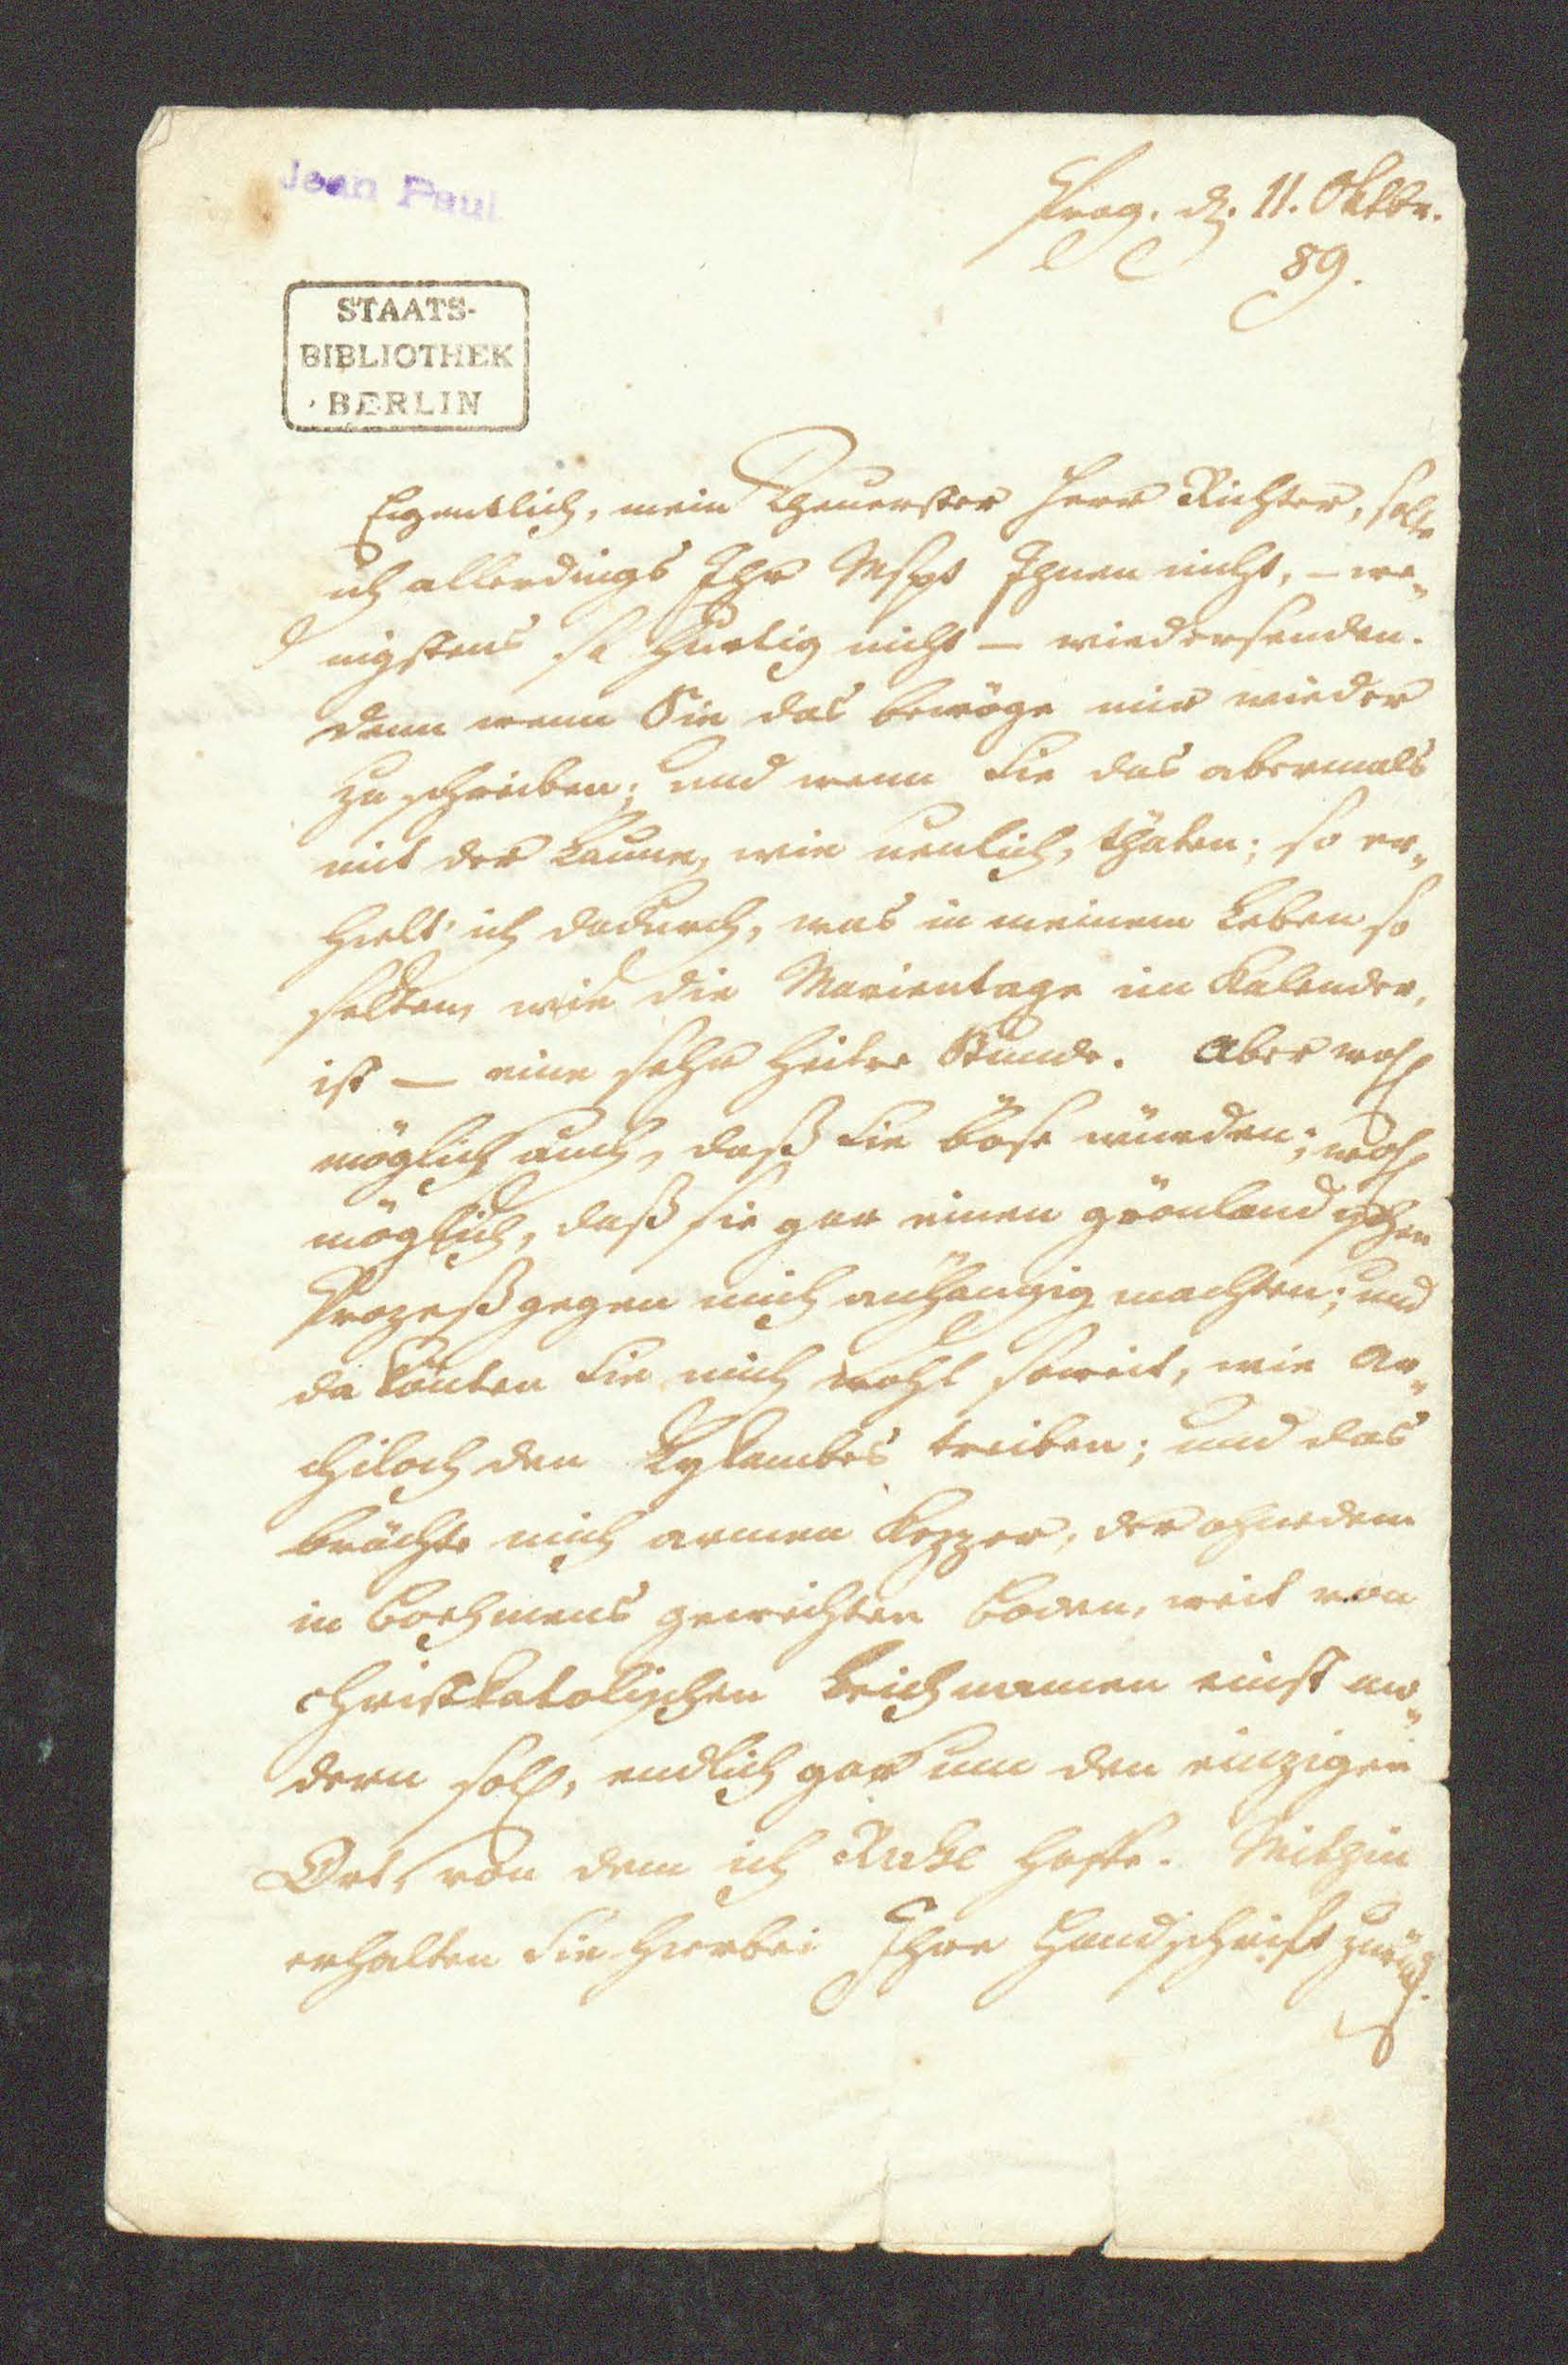 Jean Paul
Prag. d. 11. Oktbr.
89.
STAATS-
BIBLIOTHEK
BERLIN
Eigentlich, mein Theuerster Herr Richter, solte
ich allerdings Ihr Mspt Ihnen nicht, – we-
nigstens so hurtig nicht – wiedersenden.
Denn wenn Sie das bewöge mir wieder
zu schreiben; und wenn Sie das abermals
mit der Laune, wie neulich, thäten; so er-
hielt' ich dadurch, was in meinem Leben so
selten, wie die Marientage im Kalender,
ist – eine sehr heitre Stunde. Aber wohl
möglich auch, daß Sie böse würden; wohl
möglich, daß sie gar einen grönländischen
Prozeß gegen mich anhängig machten; und
da könten Sie mich wohl soweit, wie Ar-
chiloch den Lykambes treiben; und das
brächte mich armen Kezzer, der ohnedem
in Boehmens geweihten Boden, weit von
christkatolischen Leichnamen einst mo-
dern soll, endlich gar um den einzigen
Ort, von dem ich Ruhe hoffe. Mithin
erhalten Sie hierbei Ihre Handschrift zurük.